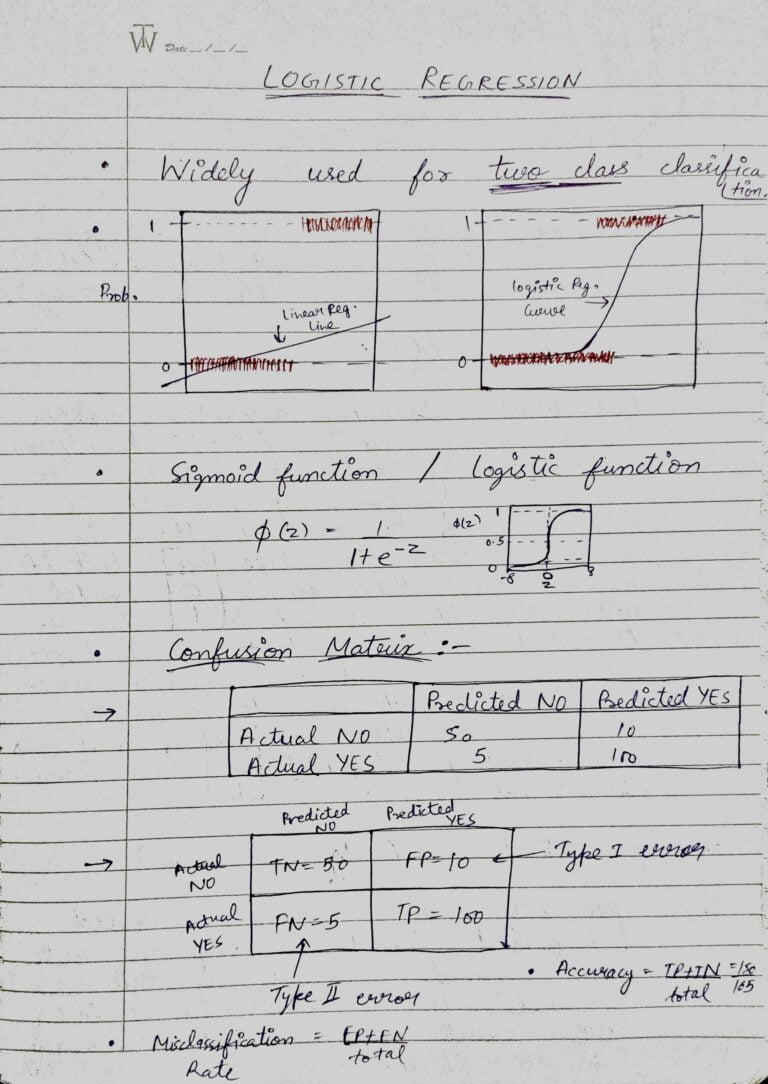 TW Date _/_/_
LOGISTIC REGRESSION
• Widely used for two class classifica
tion.
• 1
Prob.
Linear Reg.
Line
0
1
logistic Reg.
Curve
0
• Sigmoid function / logistic function
ϕ(z) = 1 / 1+e^-z
ϕ(z) 1
0.5
0
-8 0 8
z
• Confusion Matrix :-
→ Predicted NO Predicted YES
Actual NO 50 10
Actual YES 5 100
Predicted NO Predicted YES
→ Actual NO TN = 50 FP = 10 ← Type I error
Actual YES FN = 5 TP = 100
Type II error
• Accuracy = TP+TN / total = 150 / 165
• Misclassification Rate = FP+FN / total